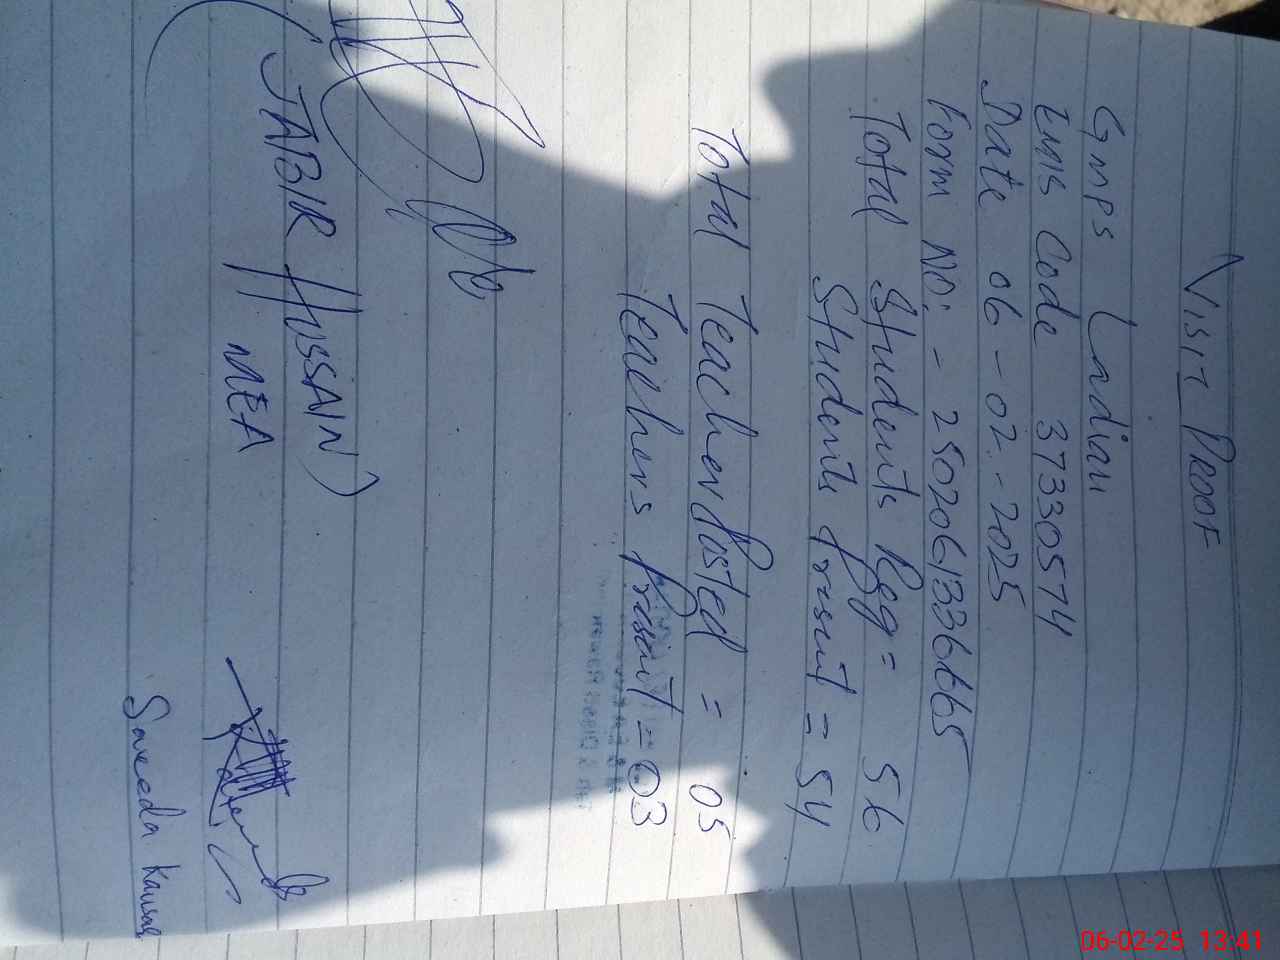 VISIT PROOF
GMPS Ladian
EMIS Code 37330574
Date 06-02-2025
Form NO:- 250206133665
Total Students Reg = 56
Students Prasint = 54
Total Teacher Posted = 05
Teachers Prasint = 03
(JABIR HUSSAIN)
MEA
Saveeda Kausar
06-02-25 13:41